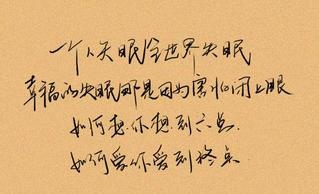 一个人失眠全世界失眠
幸福的失眠那是因为害怕闭上眼
如何想你想到六点
如何爱你爱到终点